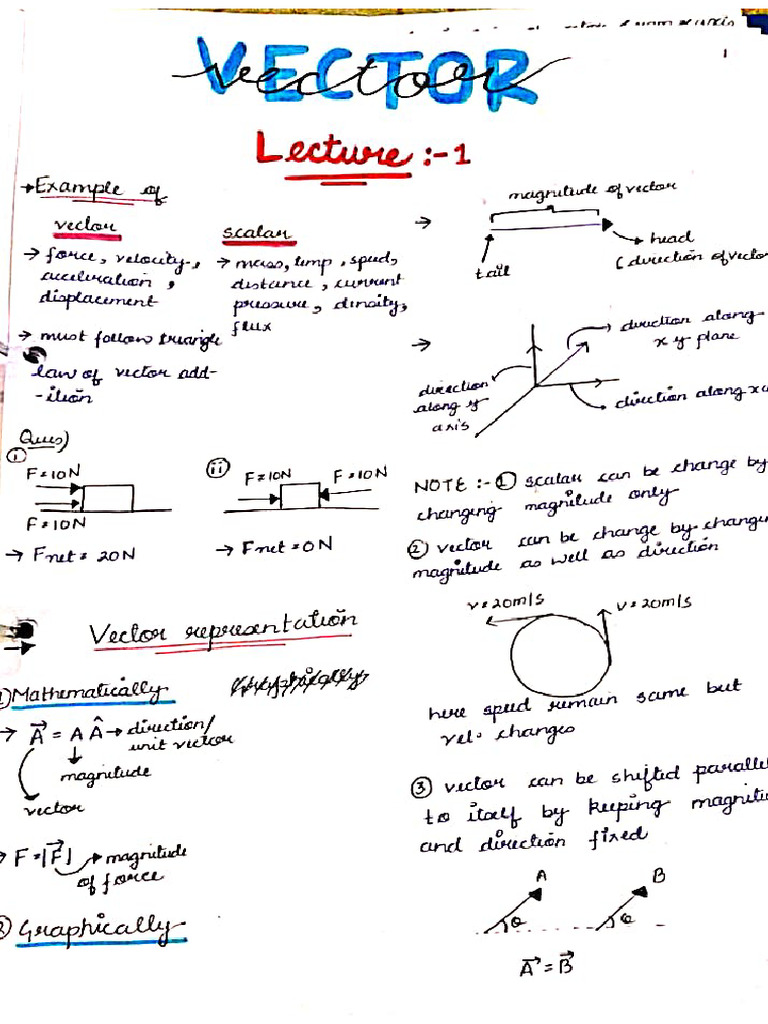 VECTOR
vector
1
Lecture :- 1
→ Example of
vector
→ force, velocity,
acceleration,
displacement
→ must follow triangle
law of vector add-
-ition
scalar
→ mass, temp, speed,
distance, current
pressure, density,
flux
Ques)
i
F=10N
F=10N
→ Fnet = 20N
ii
F=10N
F=10N
→ Fnet = 0N
Vector representation
1) Mathematically
→ A⃗ = A Â → direction/
unit vector
magnitude
vector
→ F=|F⃗| → magnitude
of force
2) Graphically
→ magnitude of vector
tail
head
(direction of vector
→ direction along
x y plane
direction
along y
axis
direction along x
NOTE :- ① scalar can be change by
changing magnitude only
② vector can be change by changin
magnitude as well as direction
v=20m/s
v=20m/s
here speed remain same but
vel. changes
③ vector can be shifted parallel
to itself by keeping magnitu
and direction fixed
A
θ
B
θ
A⃗ = B⃗